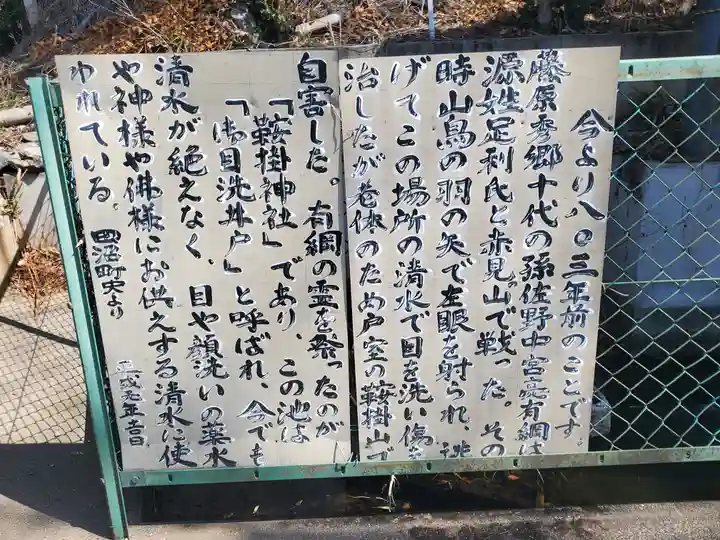 今より八〇三年前のことです。
藤原秀郷十代の孫佐野中宮亮有綱は
源姓足利氏と赤見山で戦った。その
時山鳥の羽の矢で左眼を射られ、逃
げてこの場所の清水で目を洗い傷を
治したが老体のため戸室の鞍掛山で
自害した。有綱の霊を祭ったのが
「鞍掛神社」であり、この池は
「御目洗井戸」と呼ばれ、今でも
清水が絶えなく、目や顔洗いの薬水
や神様や佛様にお供えする清水に使
われている。
田沼町史より